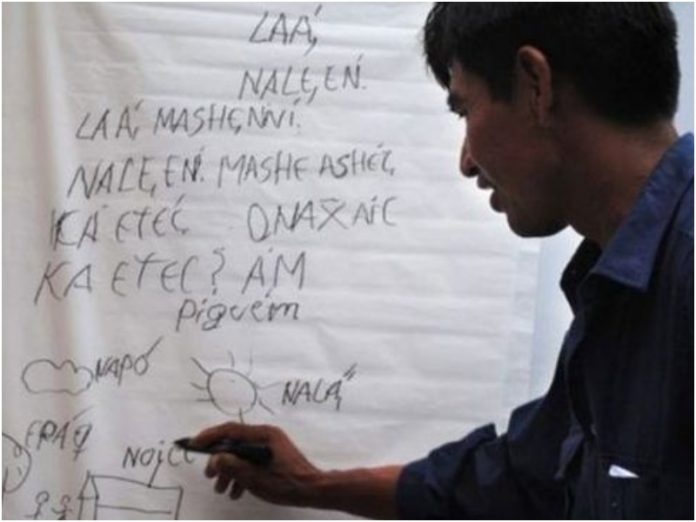 LAÁ,
NALE,EN.
LAÁ, MASHE,NNÍ.
NALE,EN. MASHE ASHÉT,
KÁ ETEĆ QNAX̃NIC
KA ETEĆ? ÁM
Piguém
NAPÓ
NALÁ,"
EPÁQ
NOICC